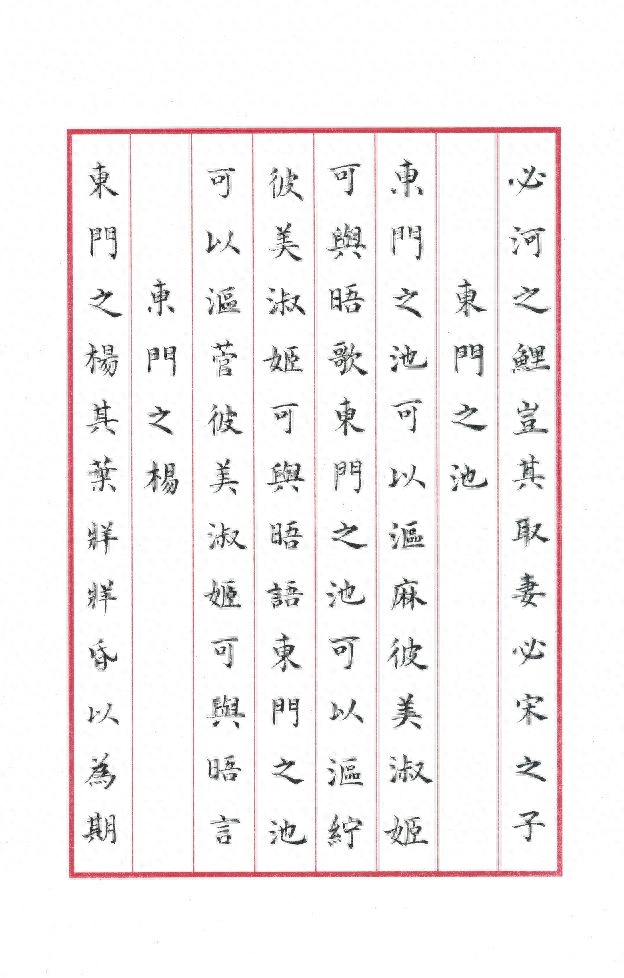 必河之鯉豈其取妻必宋之子
東門之池
東門之池可以漚麻彼美淑姬
可與晤歌東門之池可以漚紵
彼美淑姬可與晤語東門之池
可以漚菅彼美淑姬可與晤言
東門之楊
東門之楊其葉牂牂昏以為期